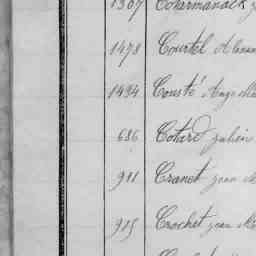 1307 Cotarmanach
1478 Courtel Alexan
1494 Cousté Ange Ma
686 Cotard Julien
911 Cranet jean Ma
915 Crochet jean Ma